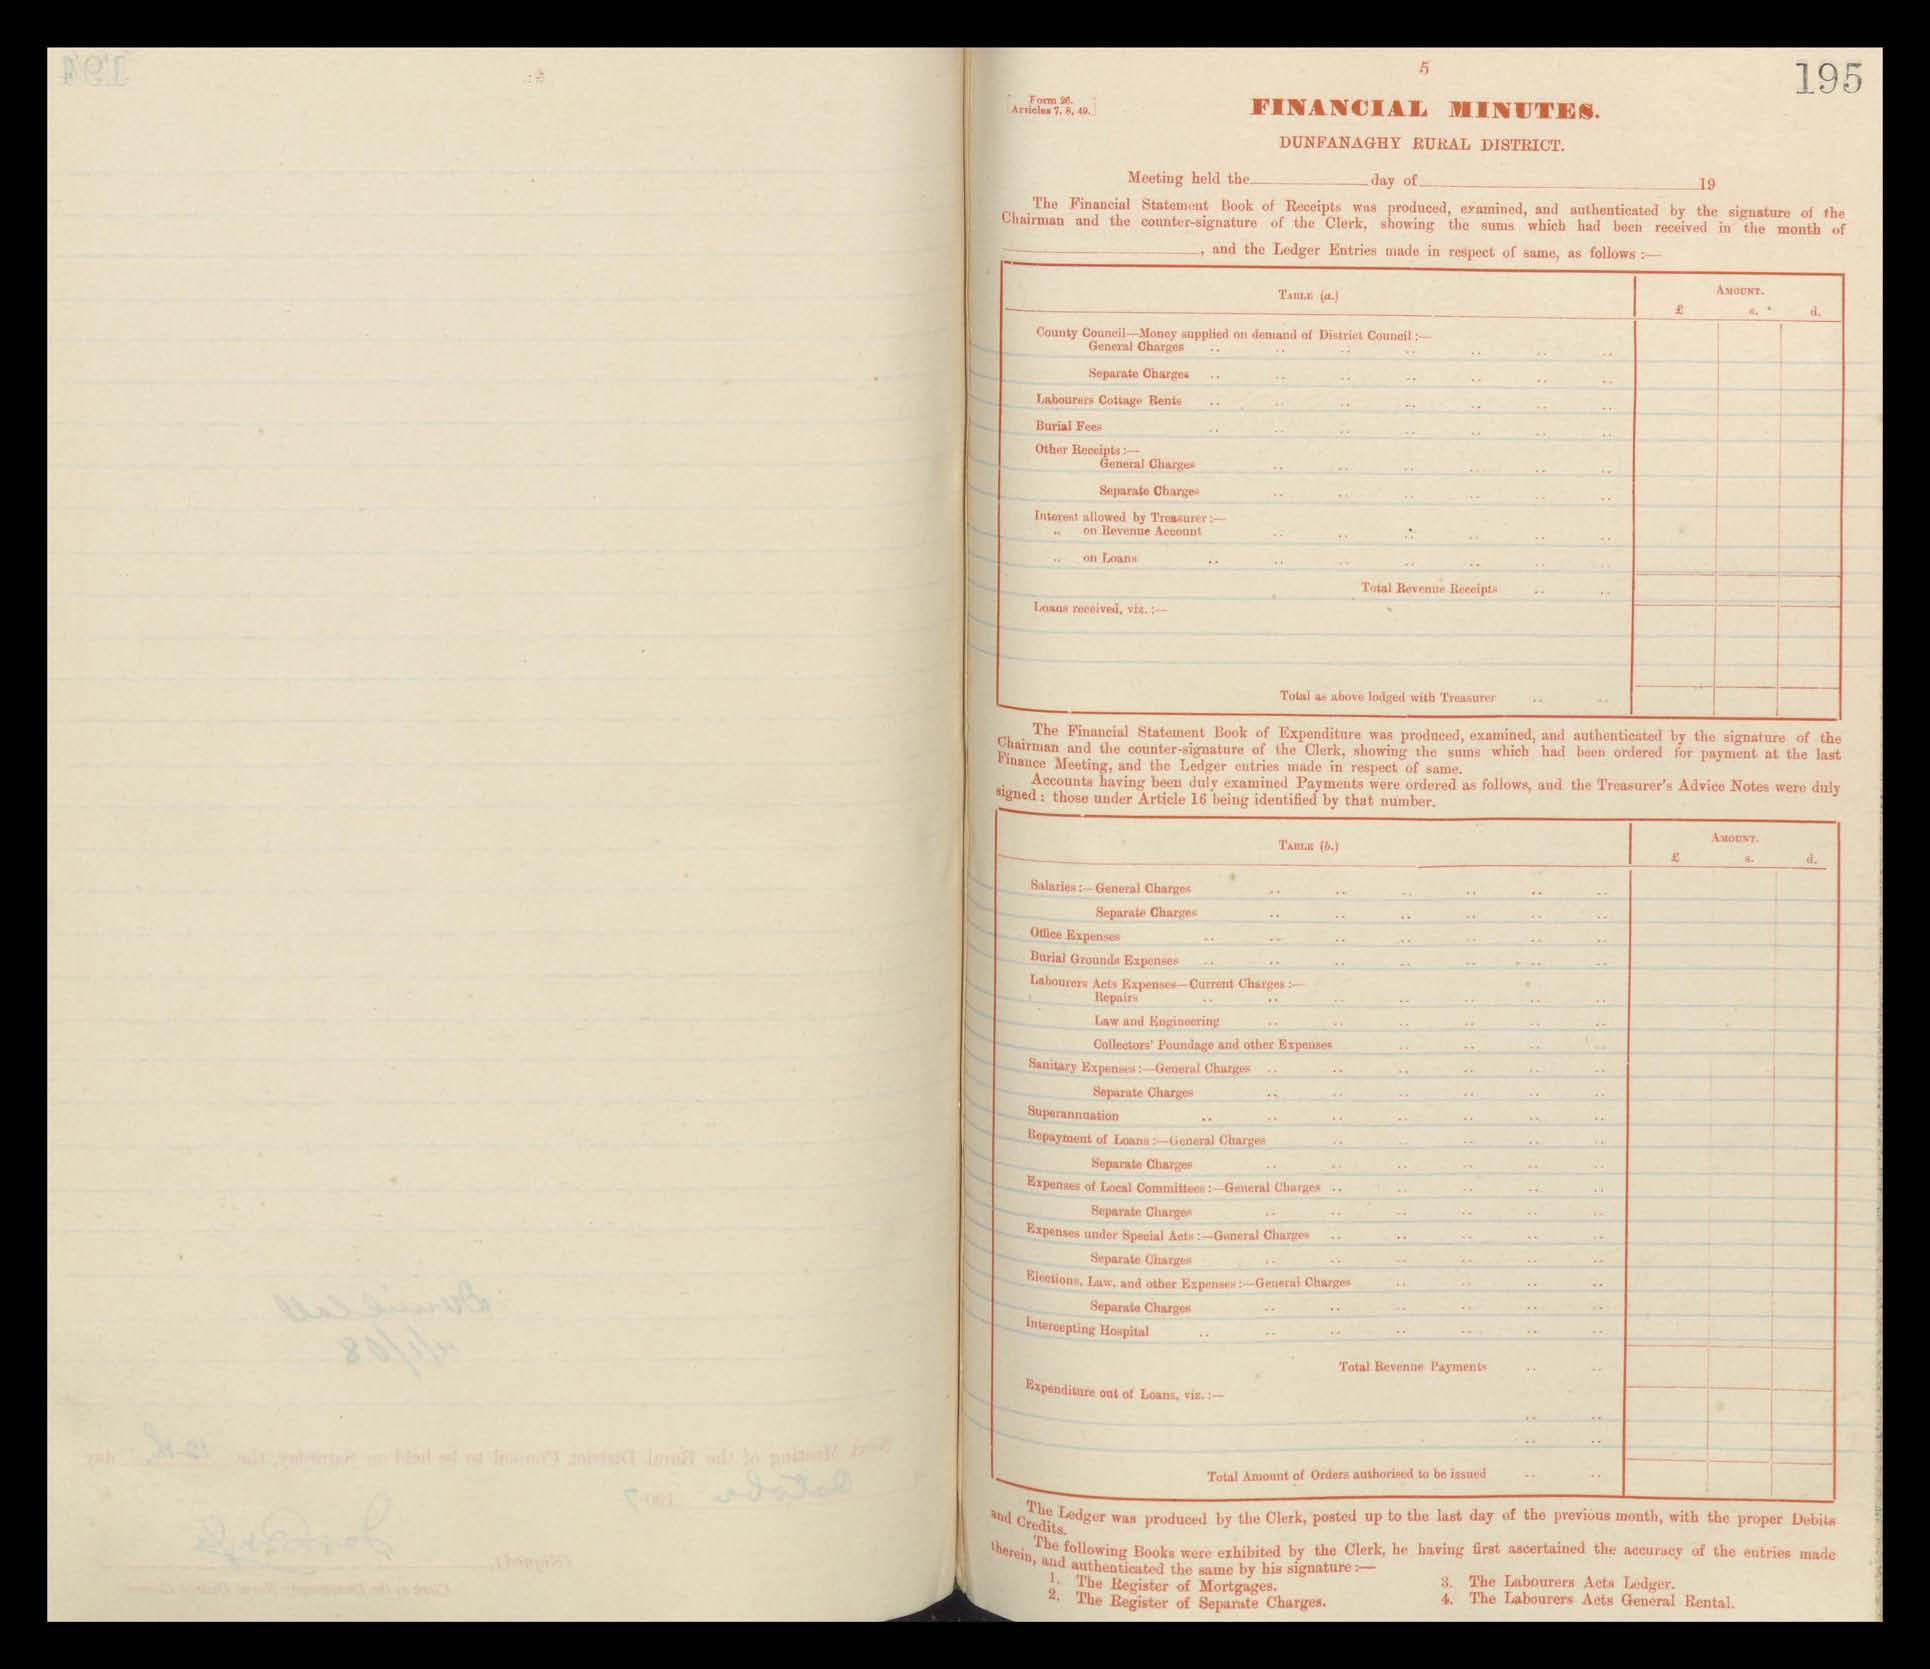 5
195
Form 26.
Articles 7, 8, 49.
FINANCIAL MINUTES.
DUNFANAGHY RURAL DISTRICT.
Meeting held the day of 19
The Financial Statement Book of Receipts was produced, examined, and authenticated by the signature of the
Chairman and the counter-signature of the Clerk, showing the sums which had been received in the month of
, and the Ledger Entries made in respect of same, as follows :—
TABLE (a.)
AMOUNT.
£ s. d.
County Council—Money supplied on demand of District Council :—
General Charges
Separate Charges
Labourers Cottage Rents
Burial Fees
Other Receipts :—
General Charges
Separate Charges
Interest allowed by Treasurer :—
„ on Revenue Account
„ on Loans
Total Revenue Receipts
Loans received, viz. :—
Total as above lodged with Treasurer
The Financial Statement Book of Expenditure was produced, examined, and authenticated by the signature of the
Chairman and the counter-signature of the Clerk, showing the sums which had been ordered for payment at the last
Finance Meeting, and the Ledger entries made in respect of same.
Accounts having been duly examined Payments were ordered as follows, and the Treasurer's Advice Notes were duly
signed : those under Article 16 being identified by that number.
TABLE (b.)
AMOUNT.
£ s. d.
Salaries :—General Charges
Separate Charges
Office Expenses
Burial Grounds Expenses
Labourers Acts Expenses—Current Charges :—
Repairs
Law and Engineering
Collectors' Poundage and other Expenses
Sanitary Expenses :—General Charges
Separate Charges
Superannuation
Repayment of Loans :—General Charges
Separate Charges
Expenses of Local Committees :—General Charges
Separate Charges
Expenses under Special Acts :—General Charges
Separate Charges
Elections, Law, and other Expenses :—General Charges
Separate Charges
Intercepting Hospital
Total Revenue Payments
Expenditure out of Loans, viz. :—
Total Amount of Orders authorised to be issued
The Ledger was produced by the Clerk, posted up to the last day of the previous month, with the proper Debits
and Credits.
The following Books were exhibited by the Clerk, he having first ascertained the accuracy of the entries made
therein, and authenticated the same by his signature :—
1. The Register of Mortgages.
2. The Register of Separate Charges.
3. The Labourers Acts Ledger.
4. The Labourers Acts General Rental.